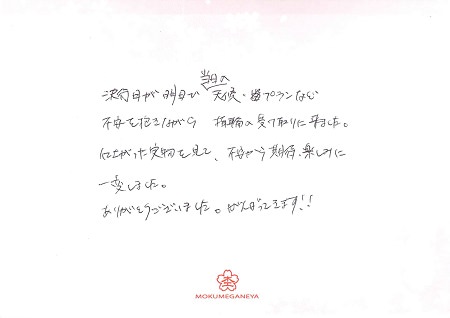 当日の
決行日が明日で 天候・プランなど
不安を抱きながら 指輪の受け取りに来ました。
仕上がった実物を見て、不安から期待・楽しみに
一変しました。
ありがとうございました。がんばってきます!!
MOKUMEGANEYA